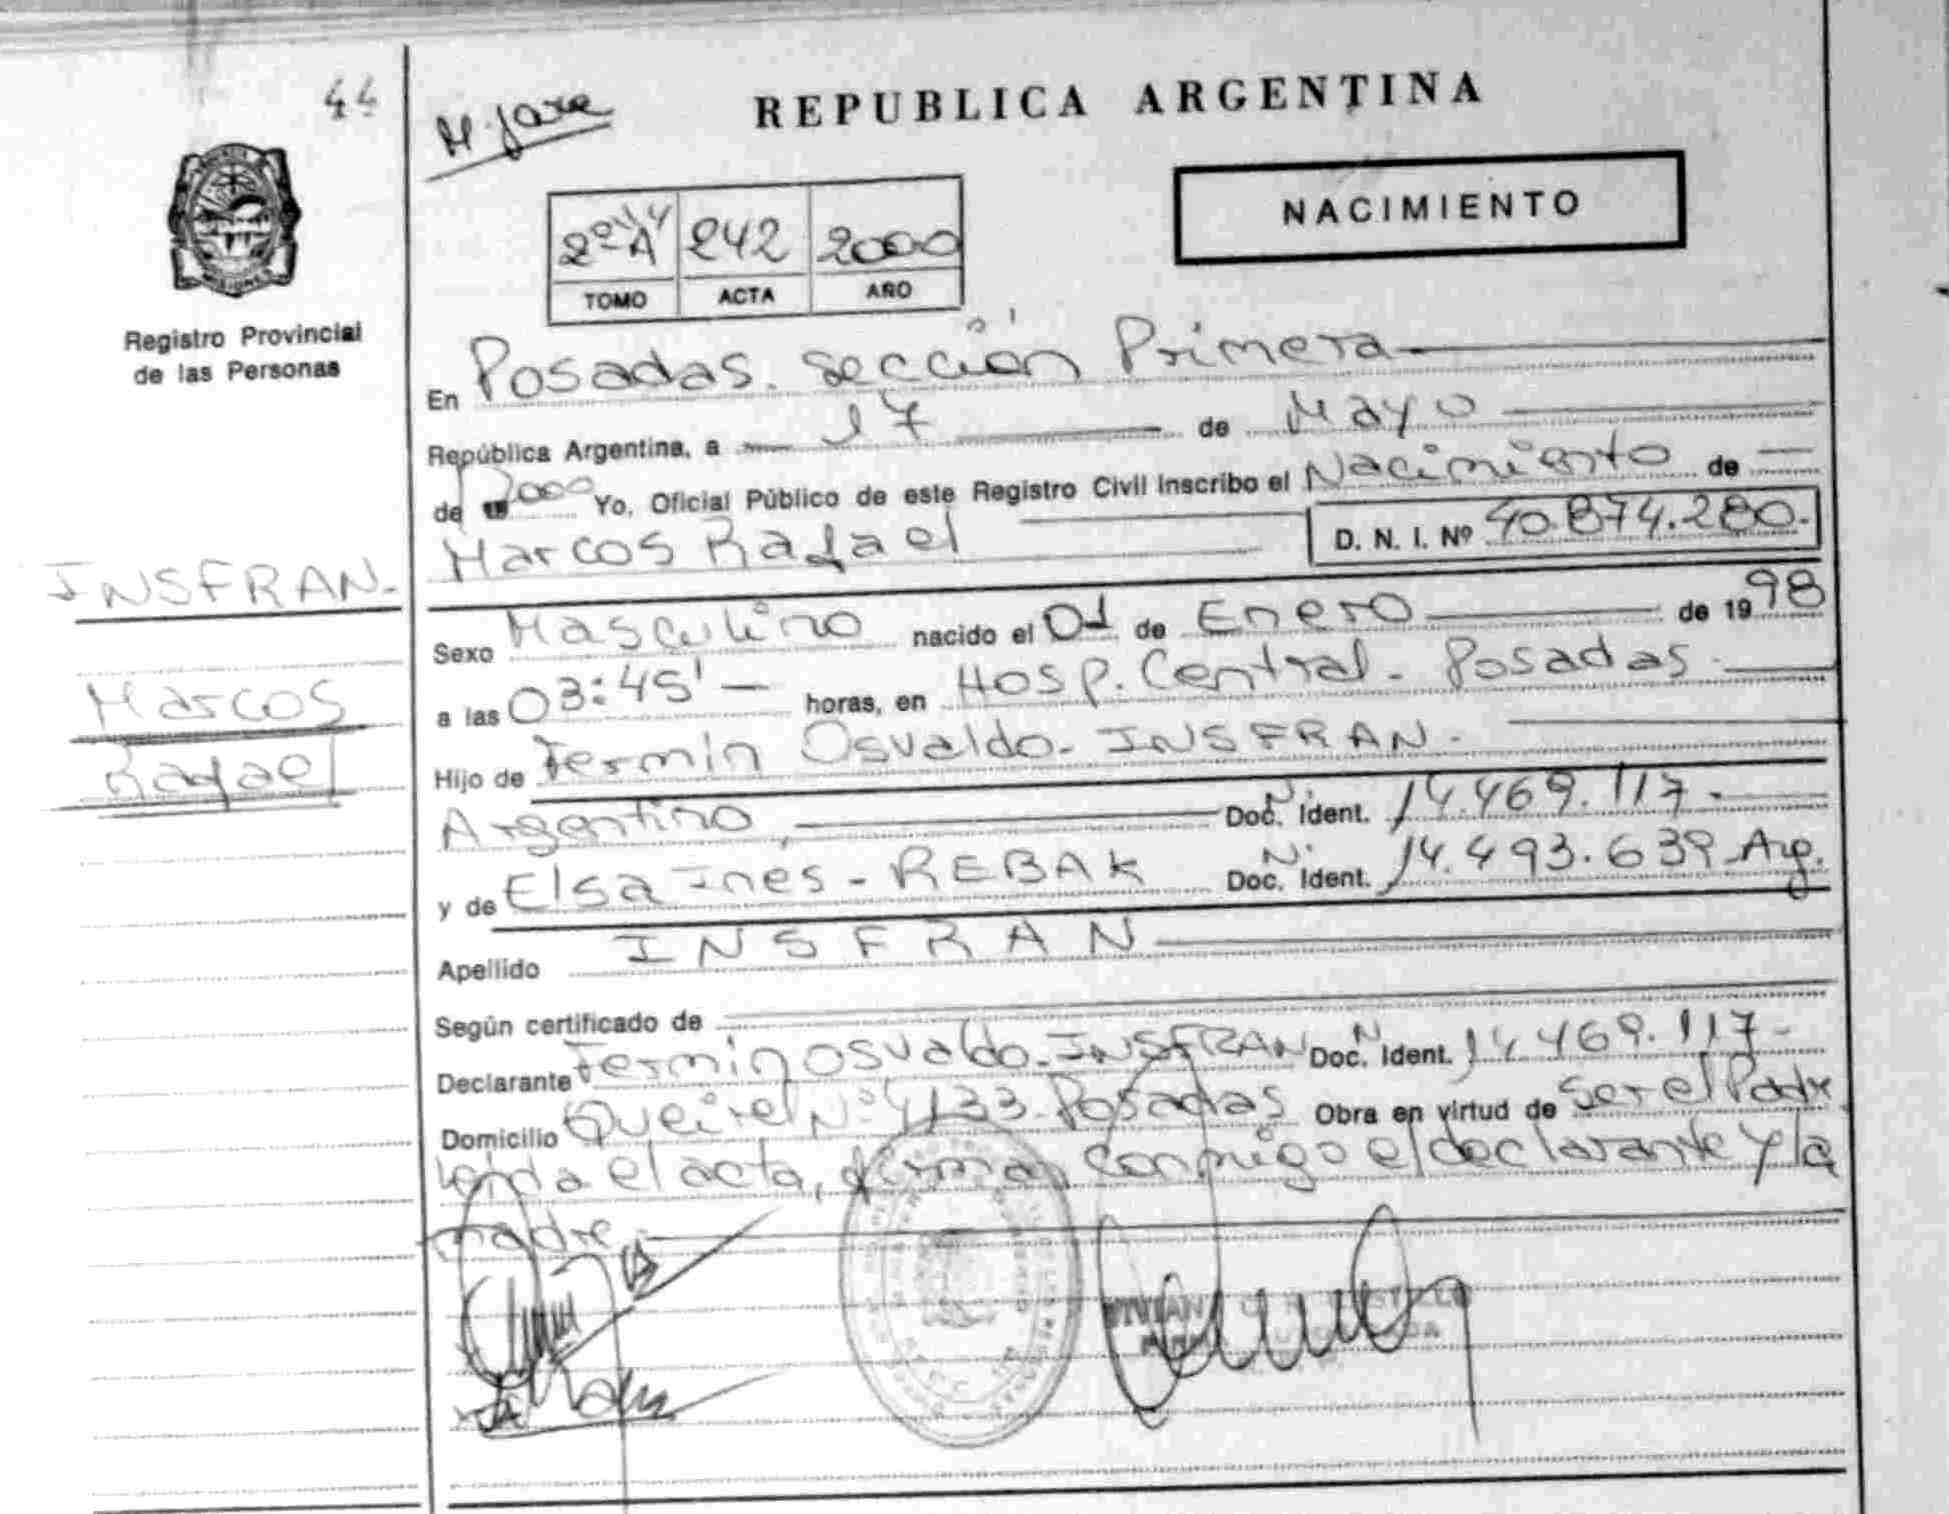 44
REPUBLICA ARGENTINA
NACIMIENTO
2º A 242 2000
TOMO ACTA AÑO
Registro Provincial
de las Personas
En Posadas. sección Primera
República Argentina, a 17 de Mayo
de 2000 Yo, Oficial Público de este Registro Civil inscribo el Nacimiento de
Marcos Rafael D. N. I. Nº 40.874.280.
INSFRAN.
Marcos
Rafael
Sexo Masculino nacido el 01 de Enero de 1998
a las 03:45' horas, en Hosp. Central. Posadas.
Hijo de Fermin Osvaldo. INSFRAN.
Argentino, Doc. N. Ident. 14.469.117.
y de Elsa Ines - REBAK Doc. N. Ident. 14.493.639 Arg.
Apellido INSFRAN
Según certificado de
Declarante Fermin Osvaldo. INSFRAN Doc. N Ident. 14.469.117-
Domicilio Nº 4133 Posadas Obra en virtud de ser el Padre
Leida el acta, firman conmigo el declarante y la
madre.